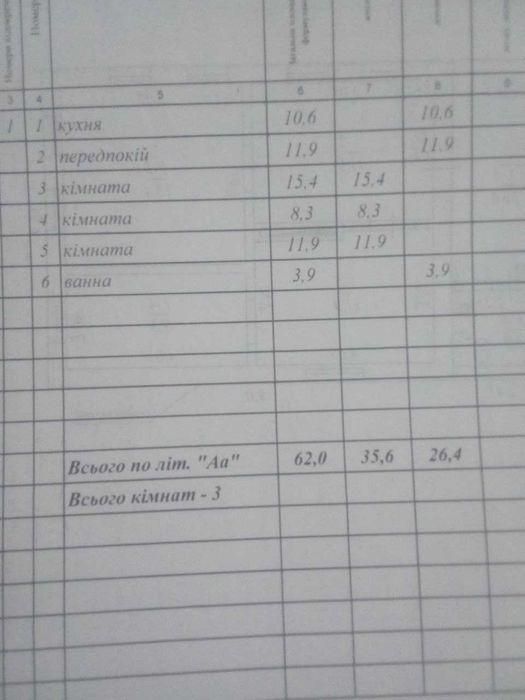 Номер
Загальна
3 4 5 6 7 8 9
1 1 кухня 10,6 10,6
2 передпокій 11,9 11,9
3 кімната 15,4 15,4
4 кімната 8,3 8,3
5 кімната 11,9 11,9
6 ванна 3,9 3,9
Всього по літ. "Аа" 62,0 35,6 26,4
Всього кімнат - 3